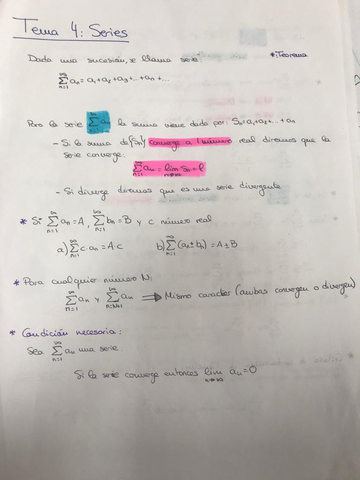 Tema 4: Series
Dada una sucesión, se llama serie: *:Teorema
∞∑n=1 an = a1+a2+a3+...+an+...
Para la serie ∞∑n=1 an la suma viene dada por: Sn=a1+a2+...+an
- Si la suma de {Sn} converge a 1 número real diremos que la
serie converge.
∞∑n=1 an = lim n→∞ Sn = l
- Si diverge diremos que es una serie divergente
* Si ∞∑n=1 an=A, ∞∑n=1 bn=B y c número real
a) ∞∑n=1 c·an=A·c b) ∞∑n=1 (an±bn)=A±B
* Para cualquier número N:
∞∑n=1 an y ∞∑n=N+1 an ⟹ Mismo caracter (ambas convergen o divergen)
* Condición necesaria:
Sea ∞∑n=1 an una serie
Si la serie converge entonces lim n→∞ an=0